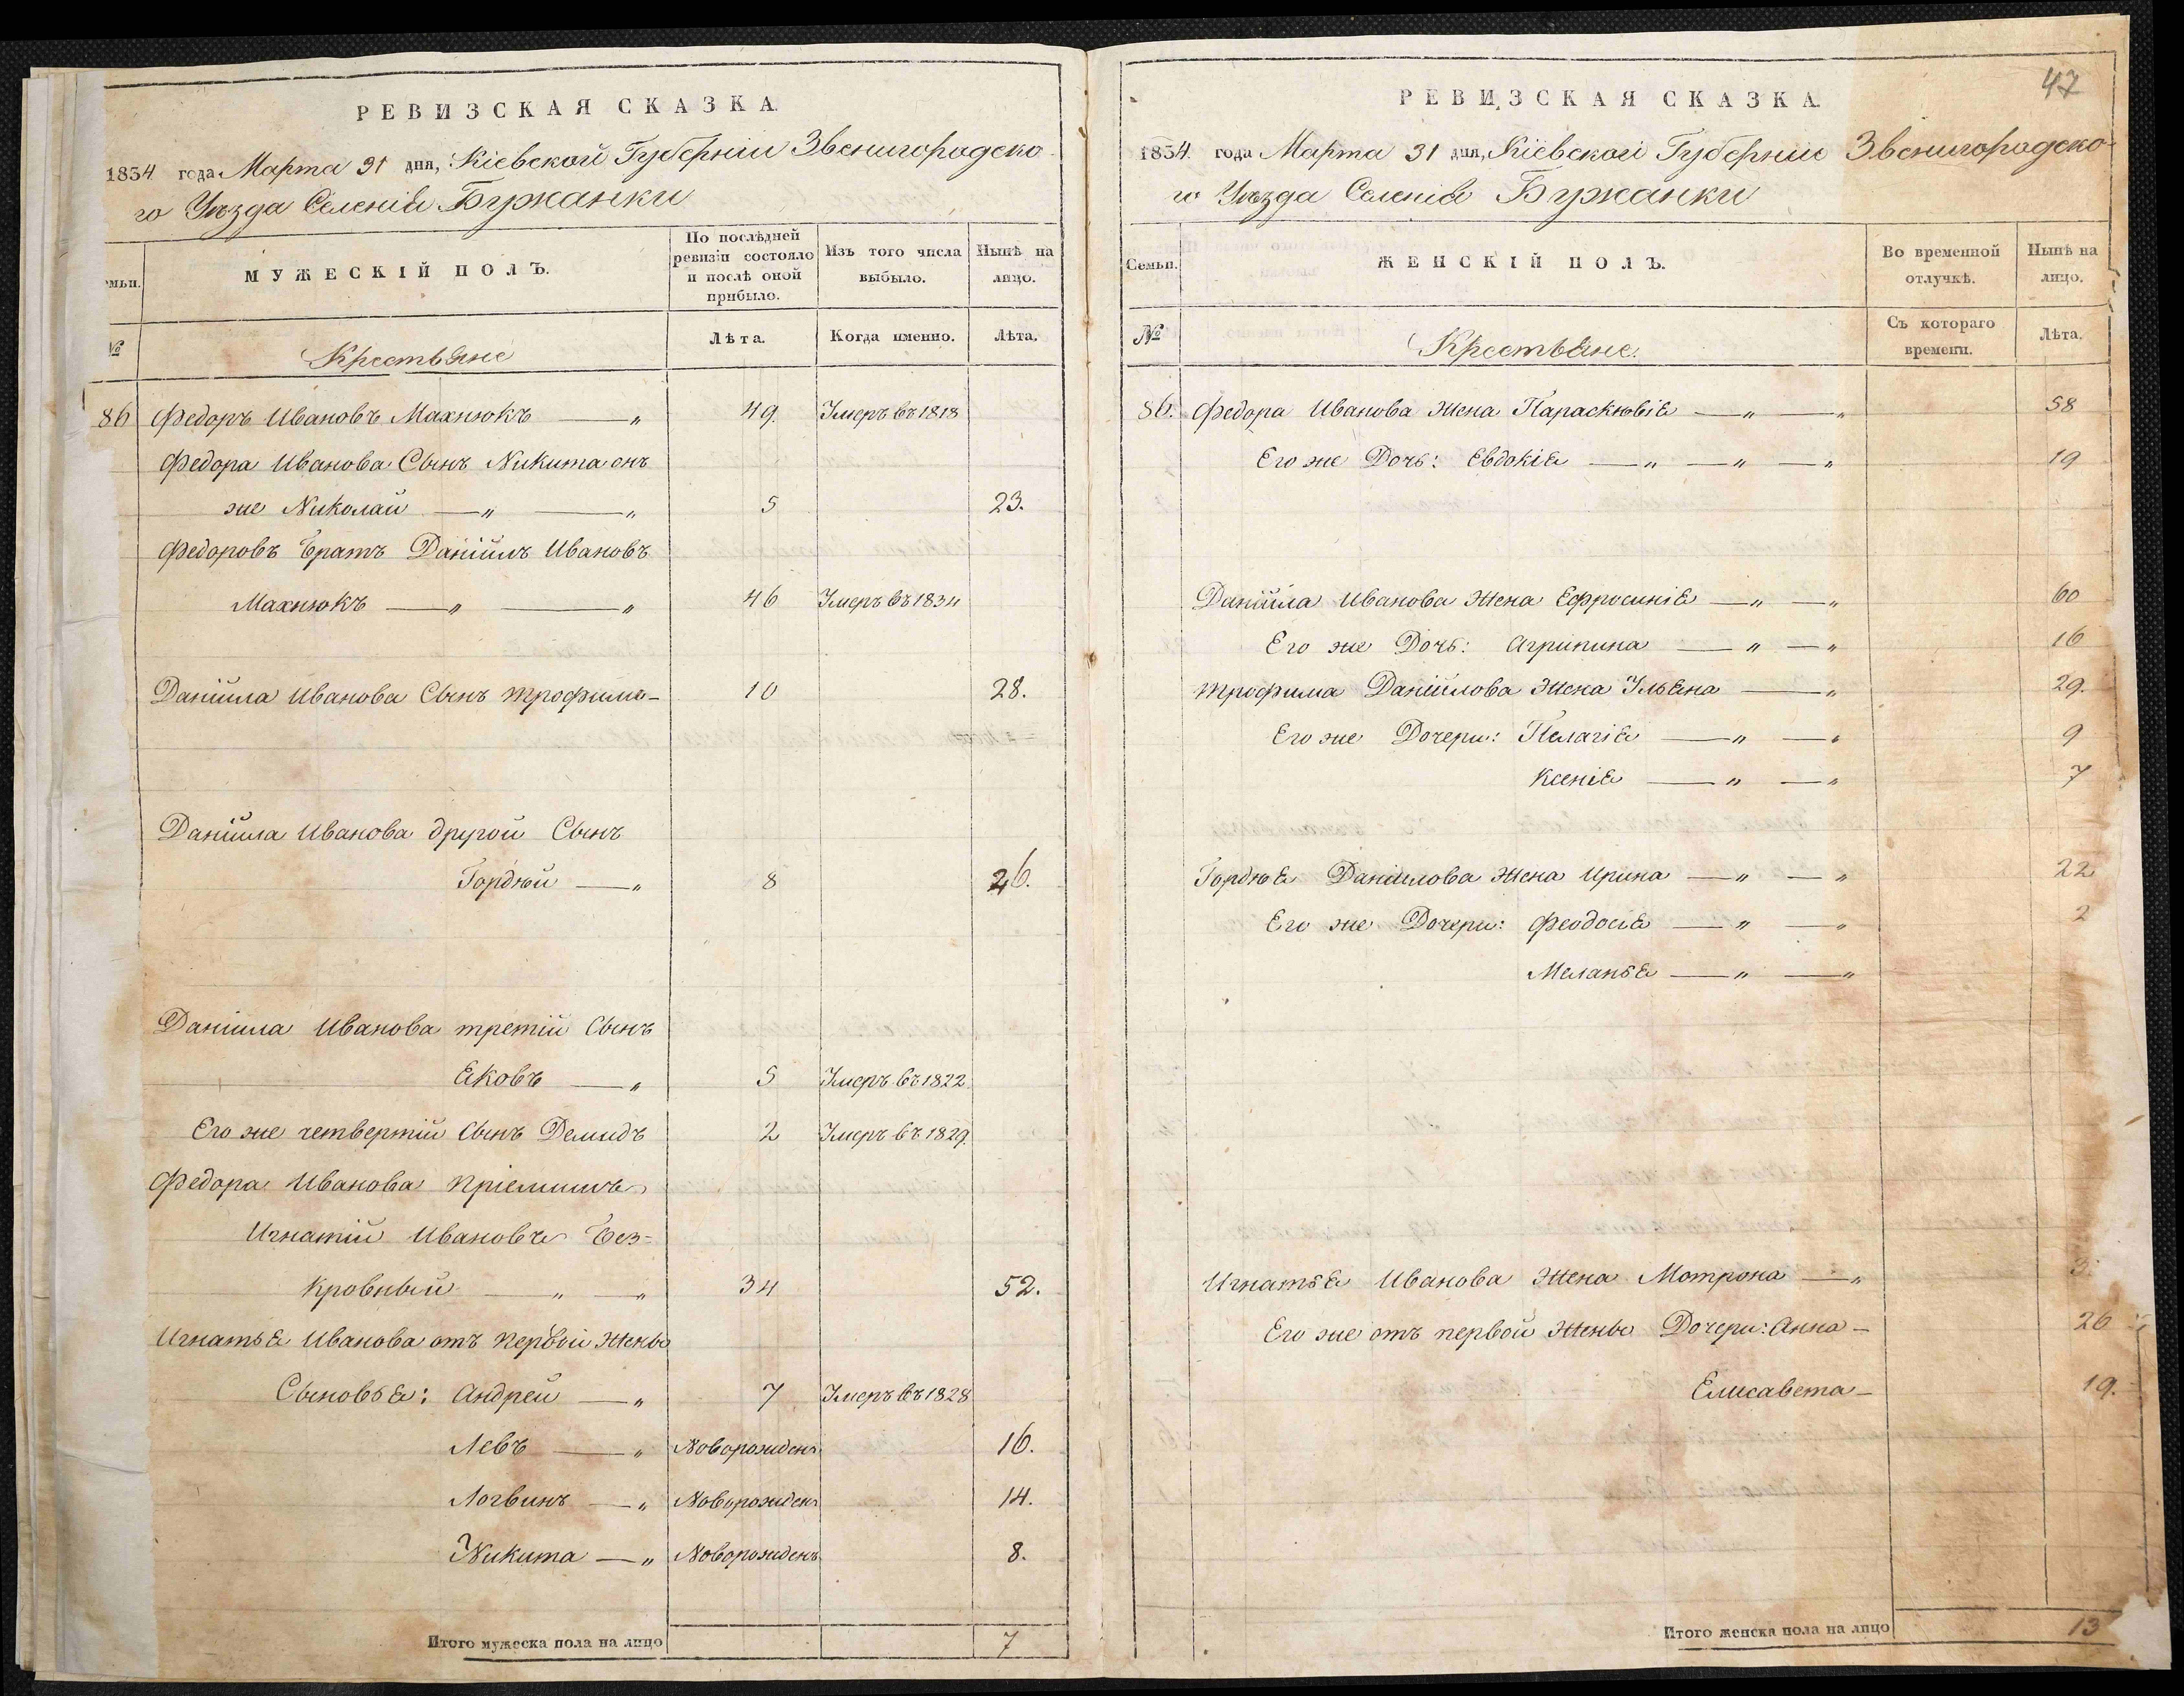 РЕВИЗСКАЯ СКАЗКА.
1834 года Марта 31 дня, Кіевской Губерніи Звенигородско-
го Уѣзда Селенія Бужанки
мьи.
МУЖЕСКІЙ ПОЛЪ.
По послѣдней ревизіи состояло и послѣ оной прибыло.
Изъ того числа выбыло.
Нынѣ на лицо.
№
Крестьяне
Лѣта.
Когда именно.
Лѣта.
86 Федоръ Ивановъ Махнюкъ — „ 49. Умеръ въ 1818
Федора Иванова Сынъ Никита онъ
же Николай — „ — „ 5 23.
Федоровъ Братъ Даніилъ Ивановъ
Махнюкъ — „ — „ 46 Умеръ въ 1834
Даніила Иванова Сынъ Трофимъ — 10 28.
Даніила Иванова другой Сынъ
Гордѣй — „ 8 26.
Даніила Иванова третій Сынъ
Яковъ — „ 5 Умеръ въ 1822
Его же четвертій Сынъ Демидъ 2 Умеръ въ 1829.
Федора Иванова Пріемышъ
Игнатій Ивановъ Без-
кровный — „ — „ 34 52.
Игнатья Иванова отъ первой жены
Сыновья: Андрей — „ 7 Умеръ въ 1828
Левъ — „ Новорожденъ 16.
Логвинъ — „ Новорожденъ 14.
Никита — „ Новорожденъ 8.
Итого мужеска пола на лицо 7
47
РЕВИЗСКАЯ СКАЗКА.
1834 года Марта 31 дня, Кіевской Губерніи Звенигородско-
го Уѣзда Селенія Бужанки
Семьи.
ЖЕНСКІЙ ПОЛЪ.
Во временной отлучкѣ.
Нынѣ на лицо.
№
Крестьяне.
Съ котораго времени.
Лѣта.
86. Федора Иванова Жена Параскѣвія — „ — „ 58
Его же Дочь: Евдокія — „ — „ — „ 19
Даніила Иванова Жена Ефросинія — „ — „ 60
Его же Дочь: Агрипина — „ — „ 16
Трофима Даніилова Жена Ульяна — „ 29.
Его же Дочери: Пелагія — „ — „ 9
Ксенія — „ — „ 7
Гордѣя Данилова Жена Ирина — „ — „ 22
Его же Дочери: Феодосія — „ — „ 2
Меланья — „ — „
Игнатья Иванова Жена Мотрона — „
Его же отъ первой Жены Дочери: Анна — 26
Елисавета — 19.
Итого женска пола на лицо 13